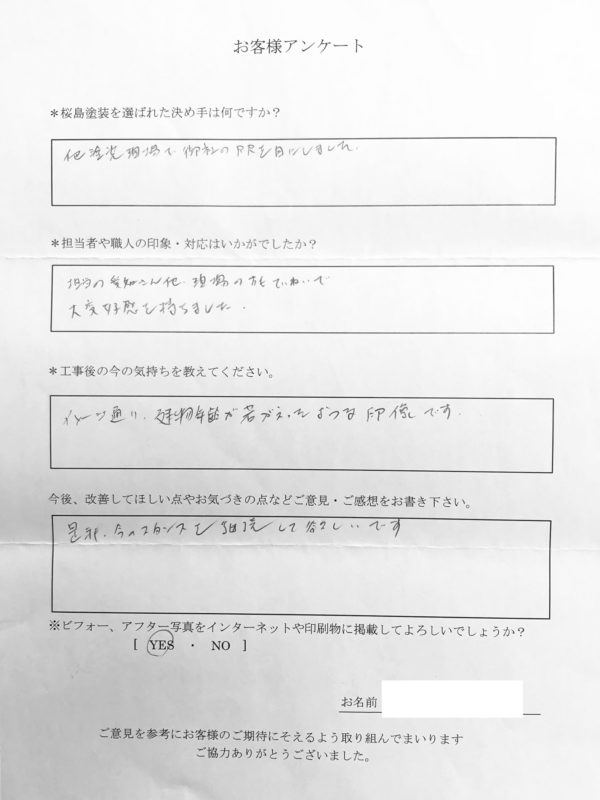 お客様アンケート
＊桜島塗装を選ばれた決め手は何ですか？
他塗装現場で御社のPRを目にしました.
＊担当者や職人の印象・対応はいかがでしたか？
担当の愛知さん他、現場の方もていねいで
大変好感を持ちました.
＊工事後の今の気持ちを教えてください。
イメージ通り、建物年齢が若がえったような印象です.
今後、改善してほしい点やお気づきの点などご意見・ご感想をお書き下さい。
是非、今のスタンスを継続して欲しいです
※ビフォー、アフター写真をインターネットや印刷物に掲載してよろしいでしょうか？
[ YES ・ NO ]
お名前
ご意見を参考にお客様のご期待にそえるよう取り組んでまいります
ご協力ありがとうございました。